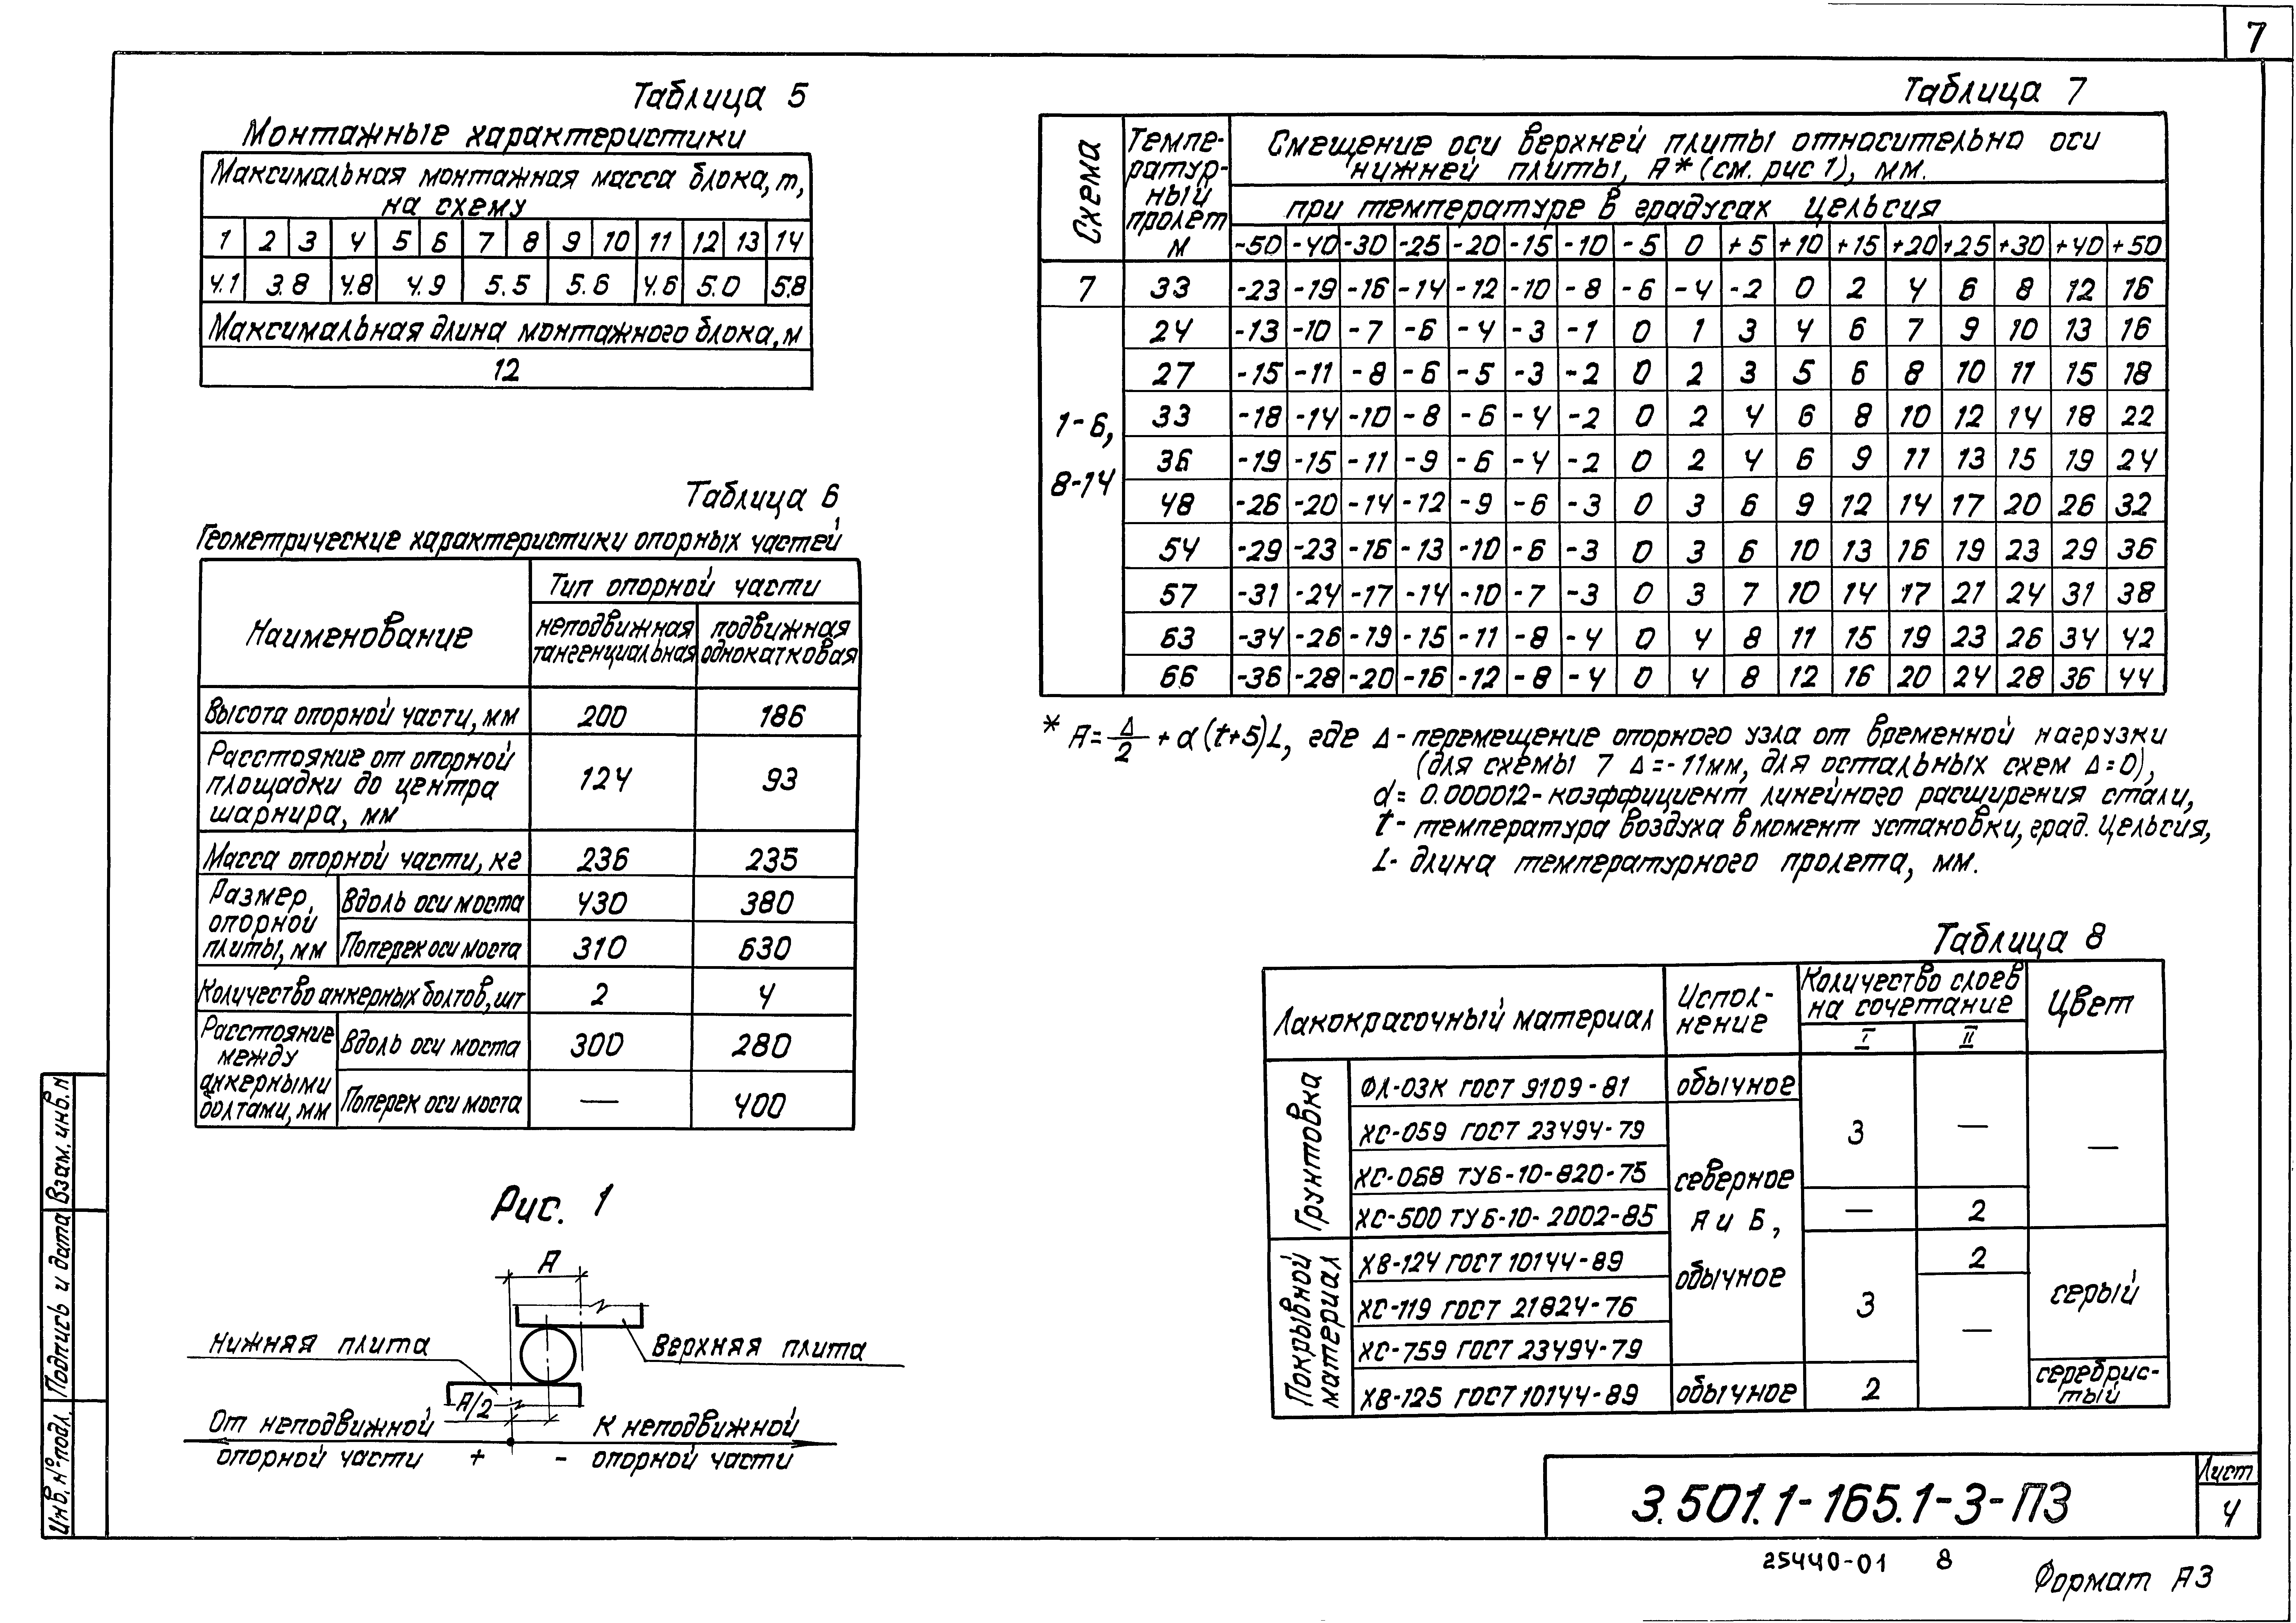 7
Таблица 5
Монтажные характеристики
Максимальная монтажная масса блока, т,
на схему
1 2 3 4 5 6 7 8 9 10 11 12 13 14
4.1 3.8 4.8 4.9 5.5 5.6 4.6 5.0 5.8
Максимальная длина монтажного блока, м
12
Таблица 6
Геометрические характеристики опорных частей
Наименование
Тип опорной части
неподвижная
тангенциальная
подвижная
однокатковая
Высота опорной части, мм 200 186
Расстояние от опорной
площадки до центра
шарнира, мм
124 93
Масса опорной части, кг 236 235
Размер,
опорной
плиты, мм
Вдоль оси моста 430 380
Поперек оси моста 310 630
Количество анкерных болтов, шт 2 4
Расстояние
между
анкерными
болтами, мм
Вдоль оси моста 300 280
Поперек оси моста — 400
Рис. 1
А
Нижняя плита
Верхняя плита
А/2
От неподвижной
опорной части
+
-
К неподвижной
опорной части
Таблица 7
Схема
Темпе-
ратур-
ный
пролет
м
Смещение оси верхней плиты относительно оси
нижней плиты, А* (см. рис 1), мм.
при температуре в градусах Цельсия
-50 -40 -30 -25 -20 -15 -10 -5 0 +5 +10 +15 +20 +25 +30 +40 +50
7 33 -23 -19 -16 -14 -12 -10 -8 -6 -4 -2 0 2 4 6 8 12 16
1-6,
8-14
24 -13 -10 -7 -6 -4 -3 -1 0 1 3 4 6 7 9 10 13 16
27 -15 -11 -8 -6 -5 -3 -2 0 2 3 5 6 8 10 11 15 18
33 -18 -14 -10 -8 -6 -4 -2 0 2 4 6 8 10 12 14 18 22
36 -19 -15 -11 -9 -6 -4 -2 0 2 4 6 9 11 13 15 19 24
48 -26 -20 -14 -12 -9 -6 -3 0 3 6 9 12 14 17 20 26 32
54 -29 -23 -16 -13 -10 -6 -3 0 3 6 10 13 16 19 23 29 36
57 -31 -24 -17 -14 -10 -7 -3 0 3 7 10 14 17 21 24 31 38
63 -34 -26 -19 -15 -11 -8 -4 0 4 8 11 15 19 23 26 34 42
66 -36 -28 -20 -16 -12 -8 -4 0 4 8 12 16 20 24 28 36 44
* А = Δ/2 + α(t+5)L, где Δ - перемещение опорного узла от временной нагрузки
(для схемы 7 Δ=-11мм, для остальных схем Δ=0),
α = 0.000012 - коэффициент линейного расширения стали,
t - температура воздуха в момент установки, град. Цельсия,
L - длина температурного пролета, мм.
Таблица 8
Лакокрасочный материал
Испол-
нение
Количество слоев
на сочетание
I II
Цвет
Грунтовка
ФЛ-03К ГОСТ 9109-81
обычное
ХС-059 ГОСТ 23494-79
3
—
—
ХС-068 ТУ6-10-820-75
северное
А и Б,
обычное
ХС-500 ТУ6-10-2002-85
— 2
Покрывной
материал
ХВ-124 ГОСТ 10144-89
2
ХС-119 ГОСТ 21824-76
3
—
серый
ХС-759 ГОСТ 23494-79
ХВ-125 ГОСТ 10144-89
обычное
2
серебрис-
тый
Инв. № подл.
Подпись и дата
Взам. инв. н
3.501.1-165.1-3-ПЗ
Лист
4
25440-01 8
Формат А3